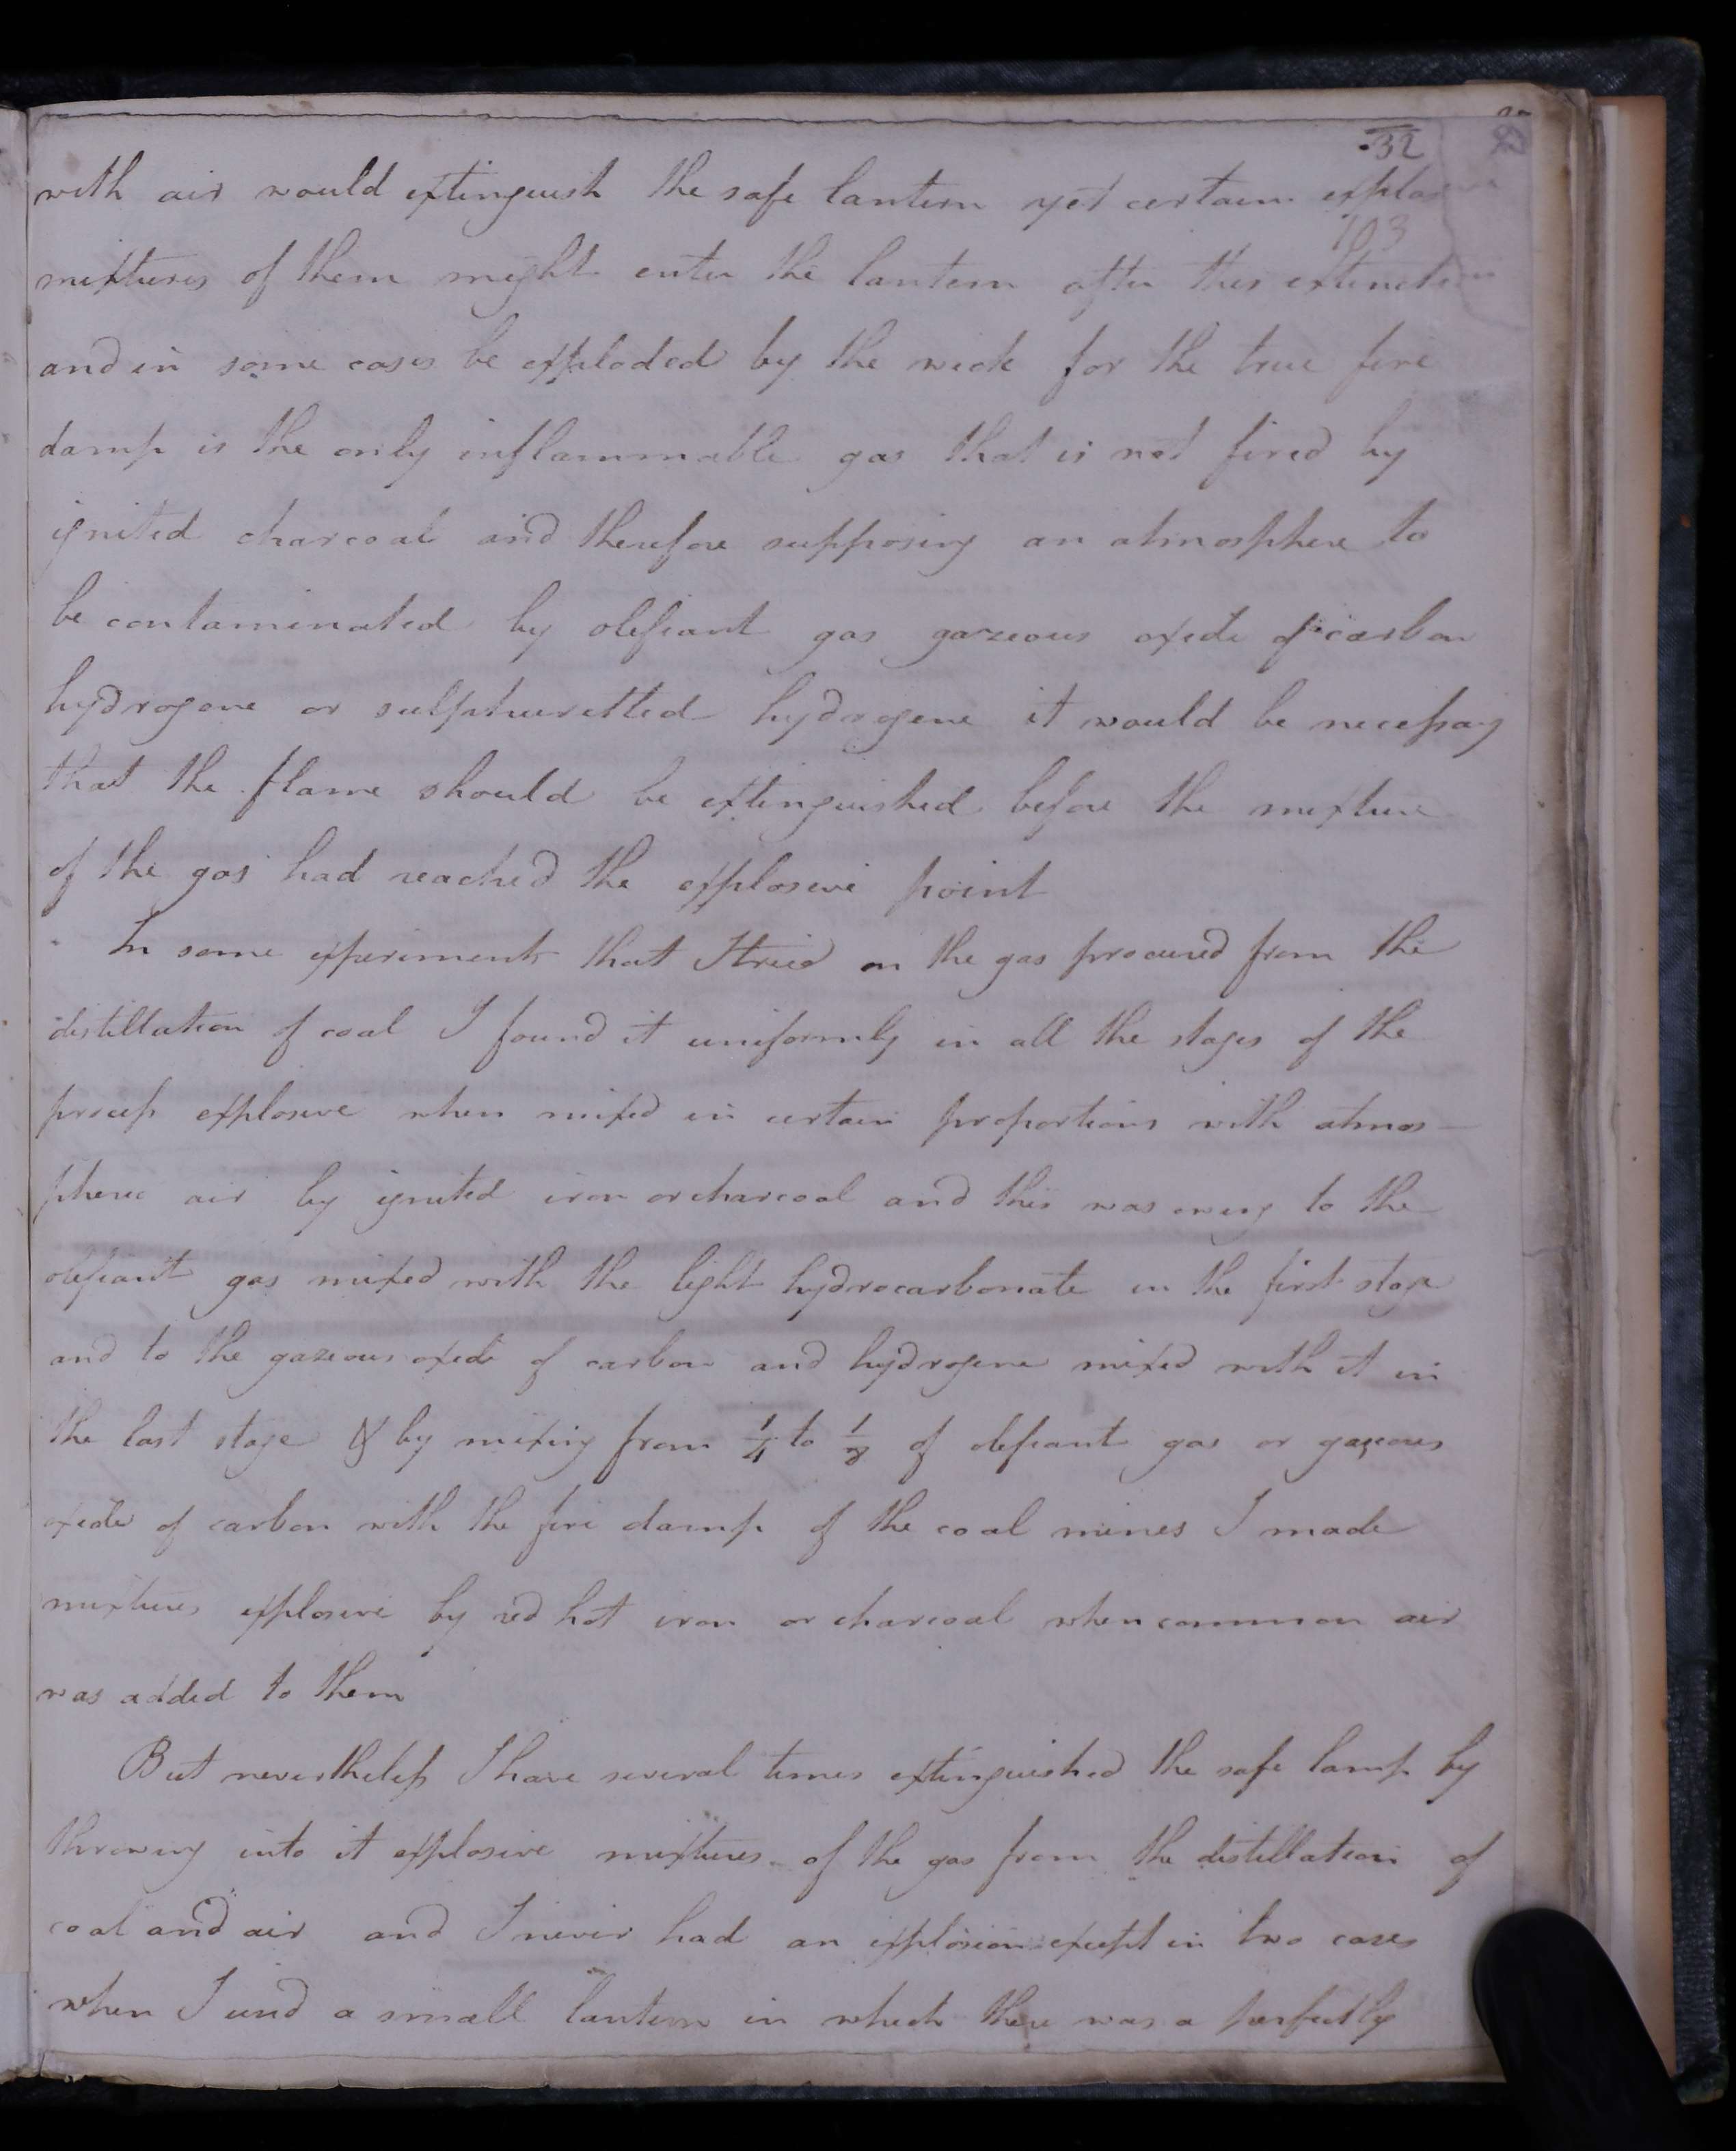 32
with air would extinguish the safe lantern yet certain explosive
103
mixtures of them might enter the lantern after this extinction
and in some cases be exploded by the wick for the true fire
damp is the only inflammable gas that is not fired by
ignited charcoal and therefore supposing an atmosphere to
be contaminated by olefiant gas gazeous oxide of carbon
hydrogene or sulphuretted hydrogene it would be necessary
that the flame should be extinguished before the mixture
of the gas had reached the explosive point
In some experiments that I tried on the gas procured from the
distillation of coal I found it uniformly in all the stages of the
process explosive when mixed in certain proportions with atmos-
pheric air by ignited iron or charcoal and this was owing to the
olefiant gas mixed with the light hydrocarbonate in the first stage
and to the gazeous oxide of carbon and hydrogene mixed with it in
the last stage & by mixing from 1/4 to 1/8 of olefiant gas or gazeous
oxide of carbon with the fire damp of the coal mines I made
mixtures explosive by red hot iron or charcoal when common air
was added to them
But nevertheless I have several times extinguished the safe lamp by
throwing into it explosive mixtures of the gas from the distillation of
coal and air and I never had an explosion except in two cases
when I used a small lantern in which there was a perfectly